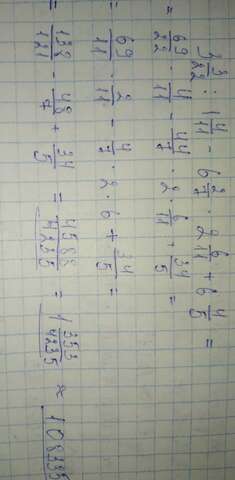 3 3/22 : 4/11 - 6 2/7 · 2 6/11 + 6 4/5 =
= 69/22 · 4/11 - 44/7 · 2 · 6/11 + 34/5 =
69/11 · 2/11 - 4/7 · 2 · 6 + 34/5 =
= 138/121 - 48/7 + 34/5 = 4588/4235 = 1 353/4235 ≈ 1 08335